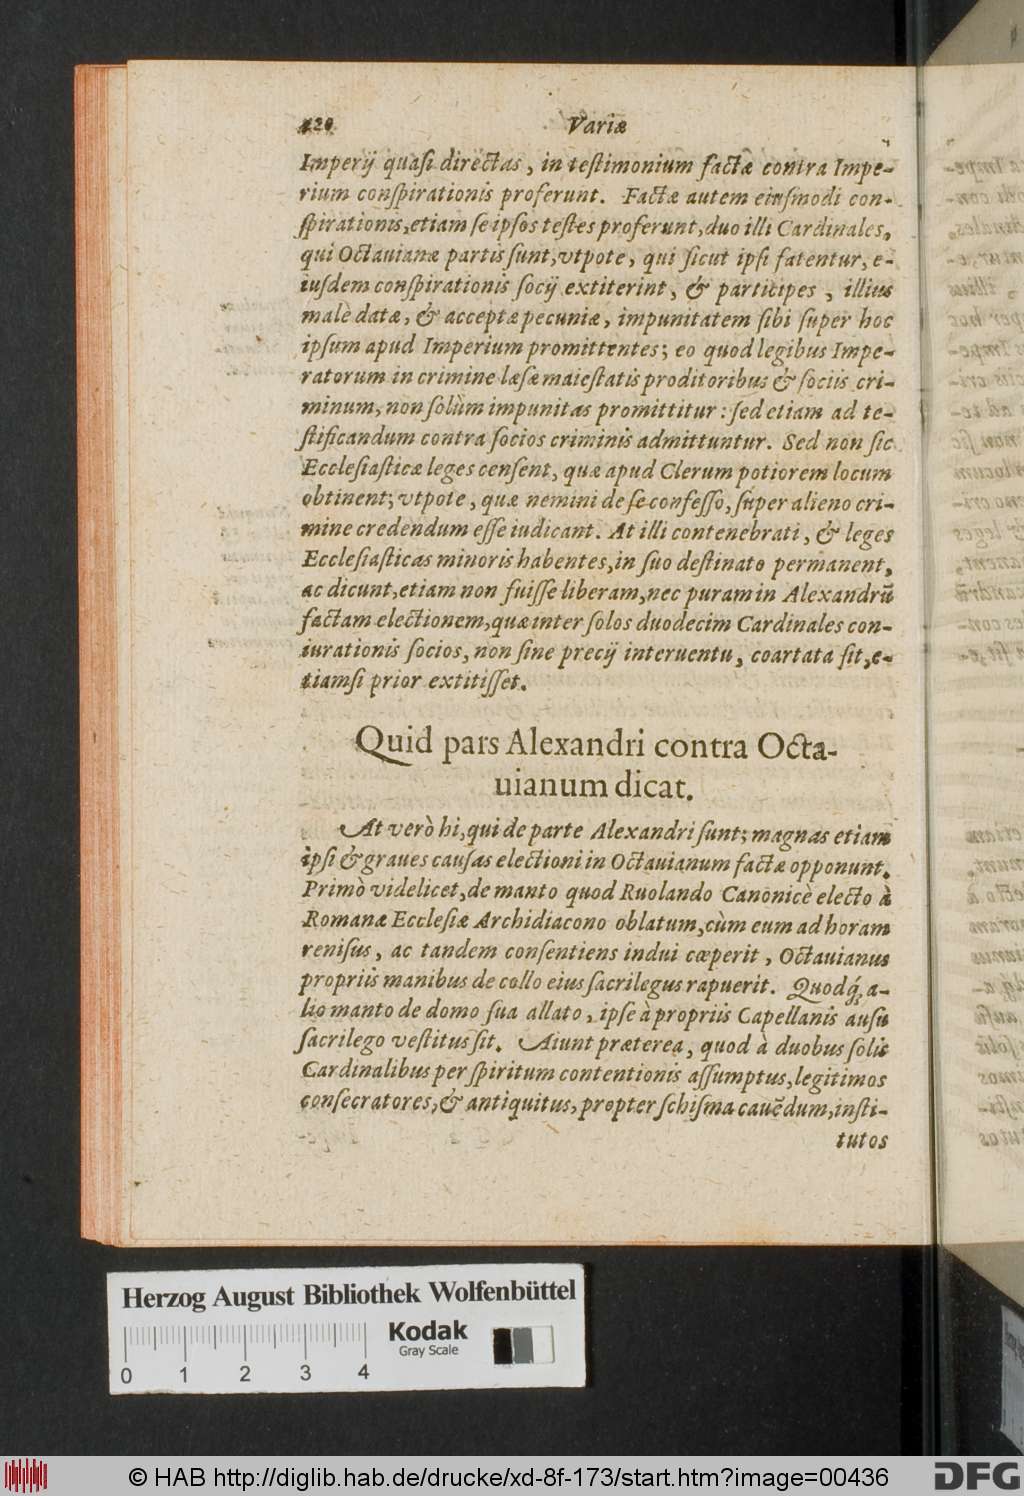 420 Variæ
Imperij quasi directas, in testimonium factæ contra Impe-
rium conspirationis proferunt. Factæ autem eiusmodi con-
spirationis, etiam se ipsos testes proferunt, duo illi Cardinales,
qui Octauianæ partis sunt, vtpote, qui sicut ipsi fatentur, e-
iusdem conspirationis socij extiterint, & participes, illius
malè datæ, & acceptæ pecuniæ, impunitatem sibi super hoc
ipsum apud Imperium promittentes; eo quod legibus Impe-
ratorum in crimine læsæ maiestatis proditoribus & sociis cri-
minum, non solùm impunitas promittitur: sed etiam ad te-
stificandum contra socios criminis admittuntur. Sed non sic
Ecclesiasticæ leges censent, quæ apud Clerum potiorem locum
obtinent; vtpote, quæ nemini de se confesso, super alieno cri-
mine credendum esse iudicant. At illi contenebrati, & leges
Ecclesiasticas minoris habentes, in suo destinato permanent,
ac dicunt, etiam non fuisse liberam, nec puram in Alexandrũ
factam electionem, quæ inter solos duodecim Cardinales con-
iurationis socios, non sine precij interuentu, coartata sit, e-
tiamsi prior extitisset.
Quid pars Alexandri contra Octa-
uianum dicat.
At verò hi, qui de parte Alexandri sunt; magnas etiam
ipsi & graues causas electioni in Octauianum factæ opponunt.
Primò videlicet, de manto quod Ruolando Canonicè electo à
Romanæ Ecclesiæ Archidiacono oblatum, cùm eum ad horam
renisus, ac tandem consentiens indui cœperit, Octauianus
propriis manibus de collo eius sacrilegus rapuerit. Quodq́; a-
lio manto de domo sua allato, ipse à propriis Capellanis ausu
sacrilego vestitus sit. Aiunt præterea, quod à duobus solis
Cardinalibus per spiritum contentionis assumptus, legitimos
consecratores, & antiquitus, propter schisma cauẽdum, insti-
tutos
Herzog August Bibliothek Wolfenbüttel
0 1 2 3 4
Kodak
Gray Scale
© HAB http://diglib.hab.de/drucke/xd-8f-173/start.htm?image=00436
DFG